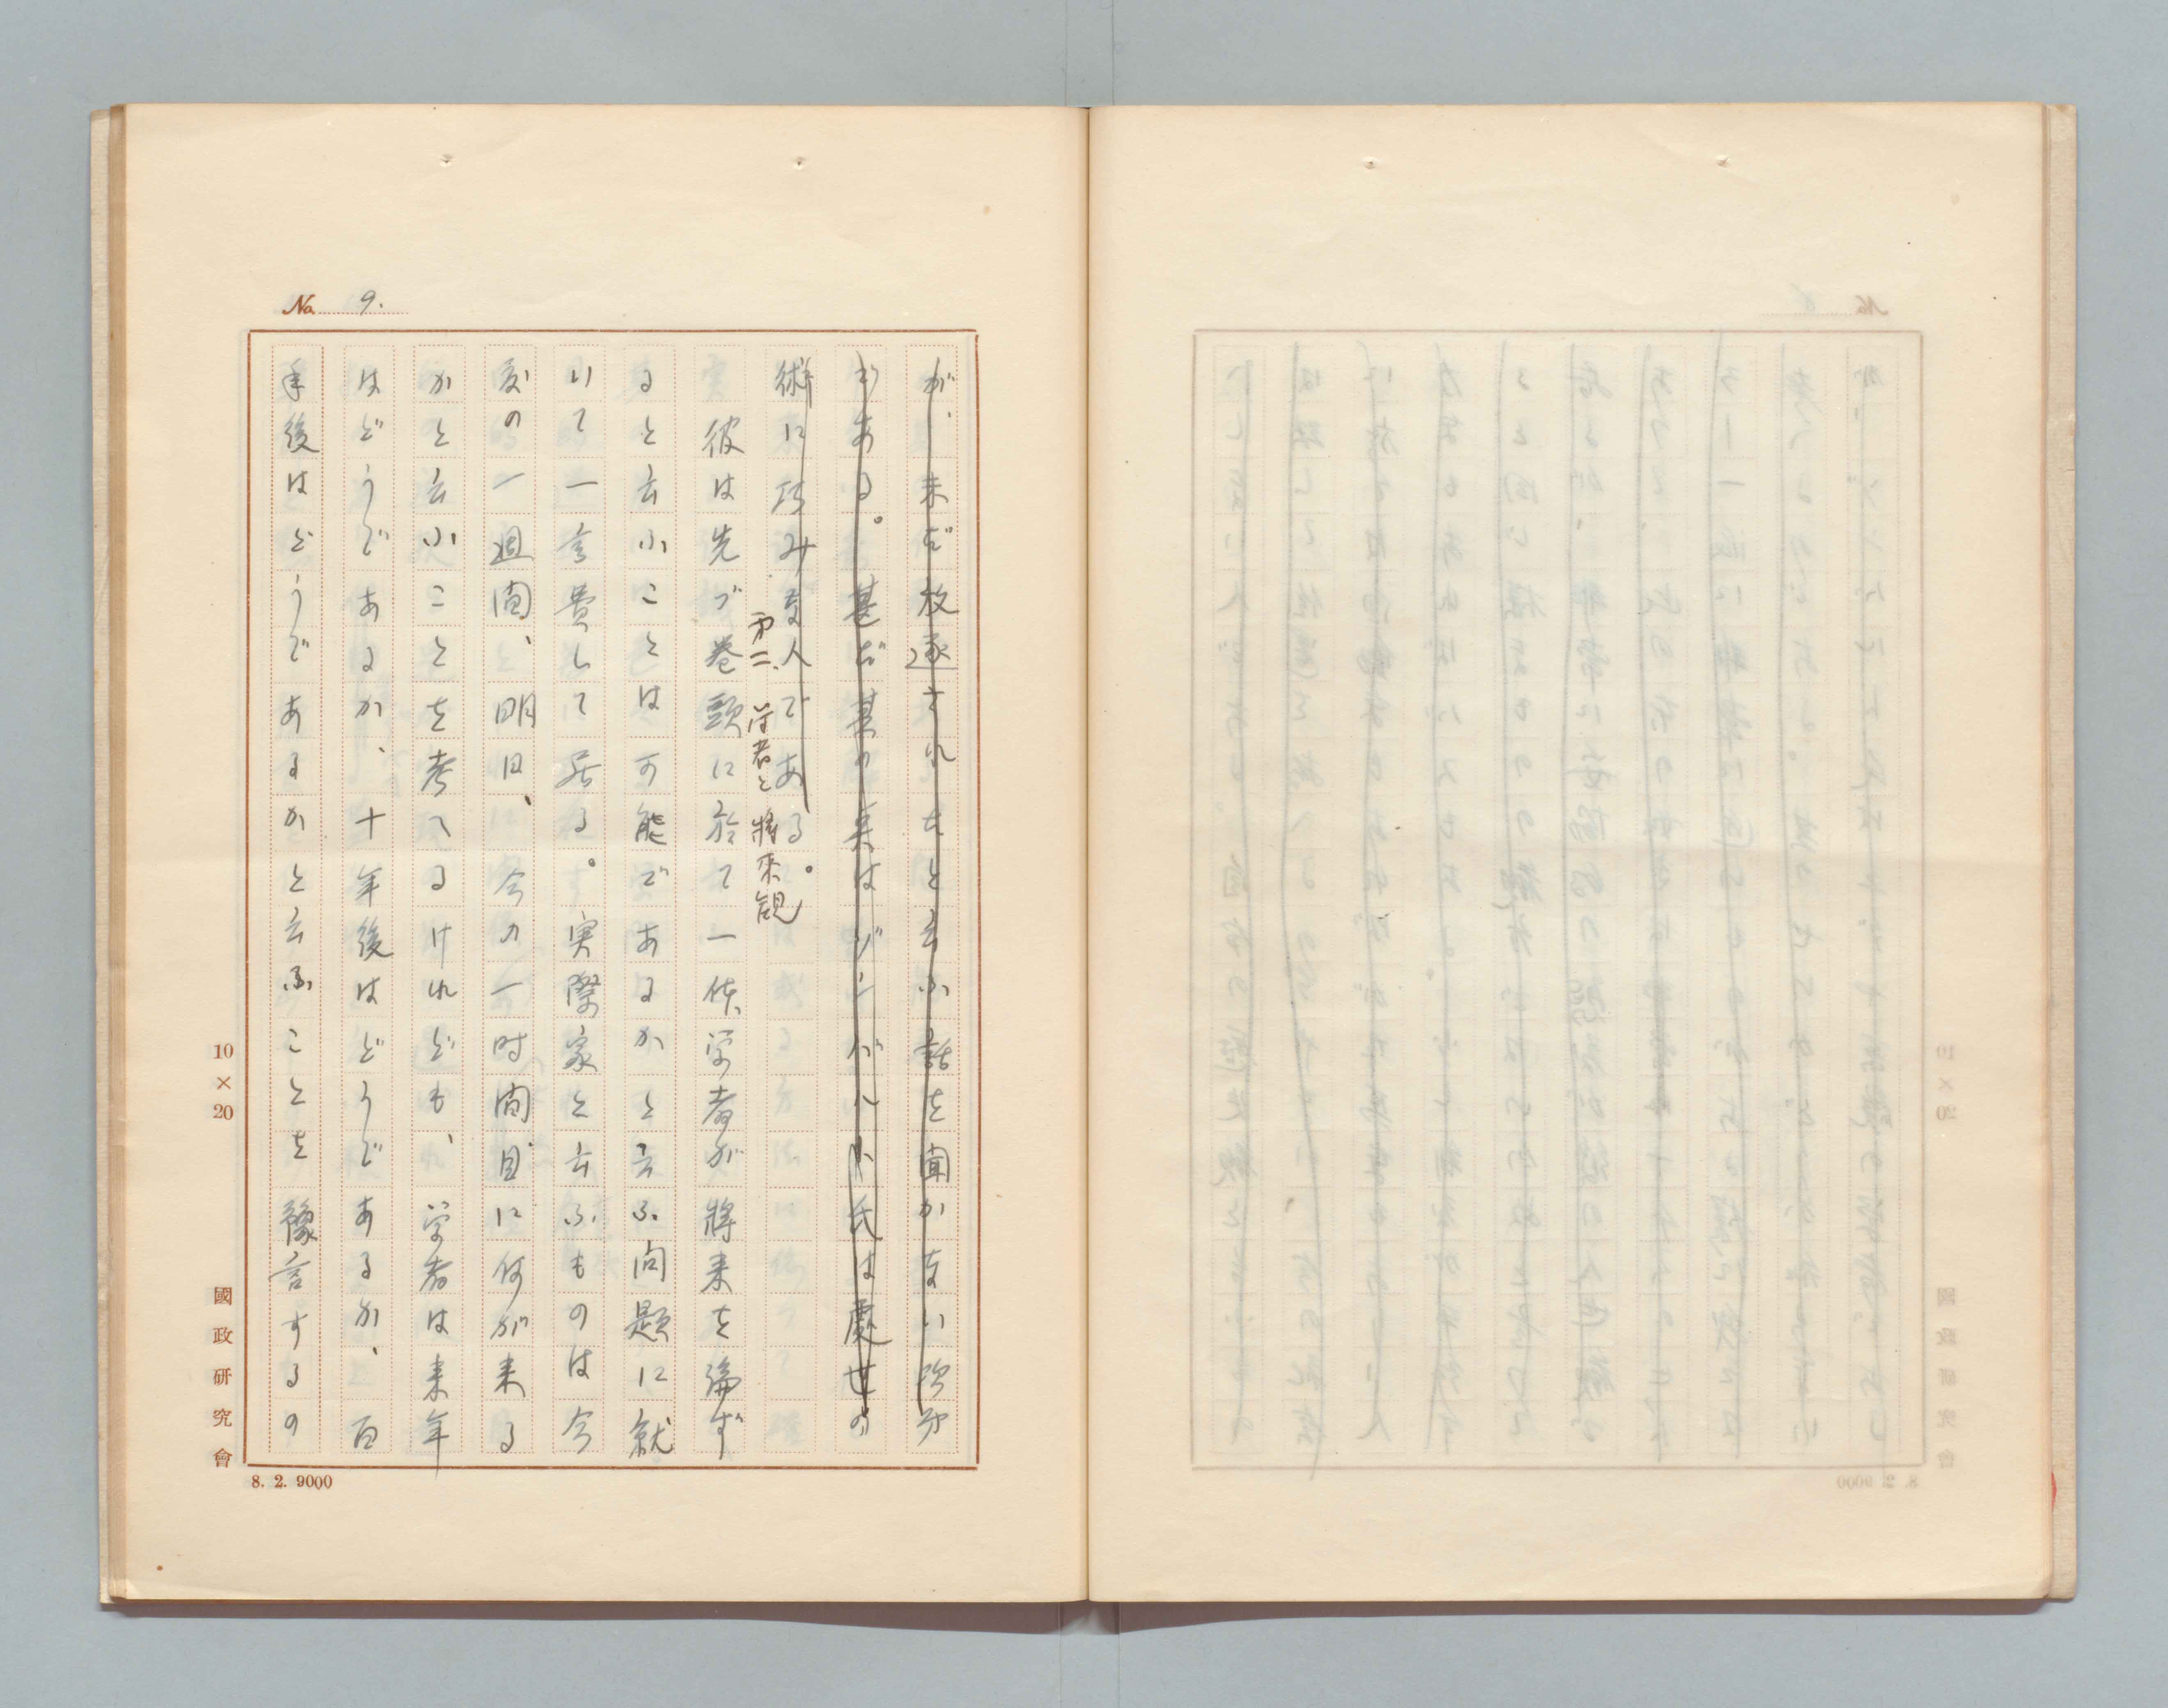 No. 9.
が、未だ放逐されたと云ふ話を聞かない次第
である。甚だ其の点はゾンバルト氏は處世の
術に巧みな人である。
第二、学者と將来観
彼は先づ巻頭に於て一体学者が將来を論ず
ると云ふことは可能であるかと云ふ問題に就
いて一言費して居る。実際家と云ふものは今
度の一週間、明日、今の一時間目に何が来る
かと云ふことを考へるけれども、学者は来年
はどうであるか、十年後はどうであるか、百
年後はどうであるかと云ふことを豫言するの
10×20
國政研究會
8. 2. 9000